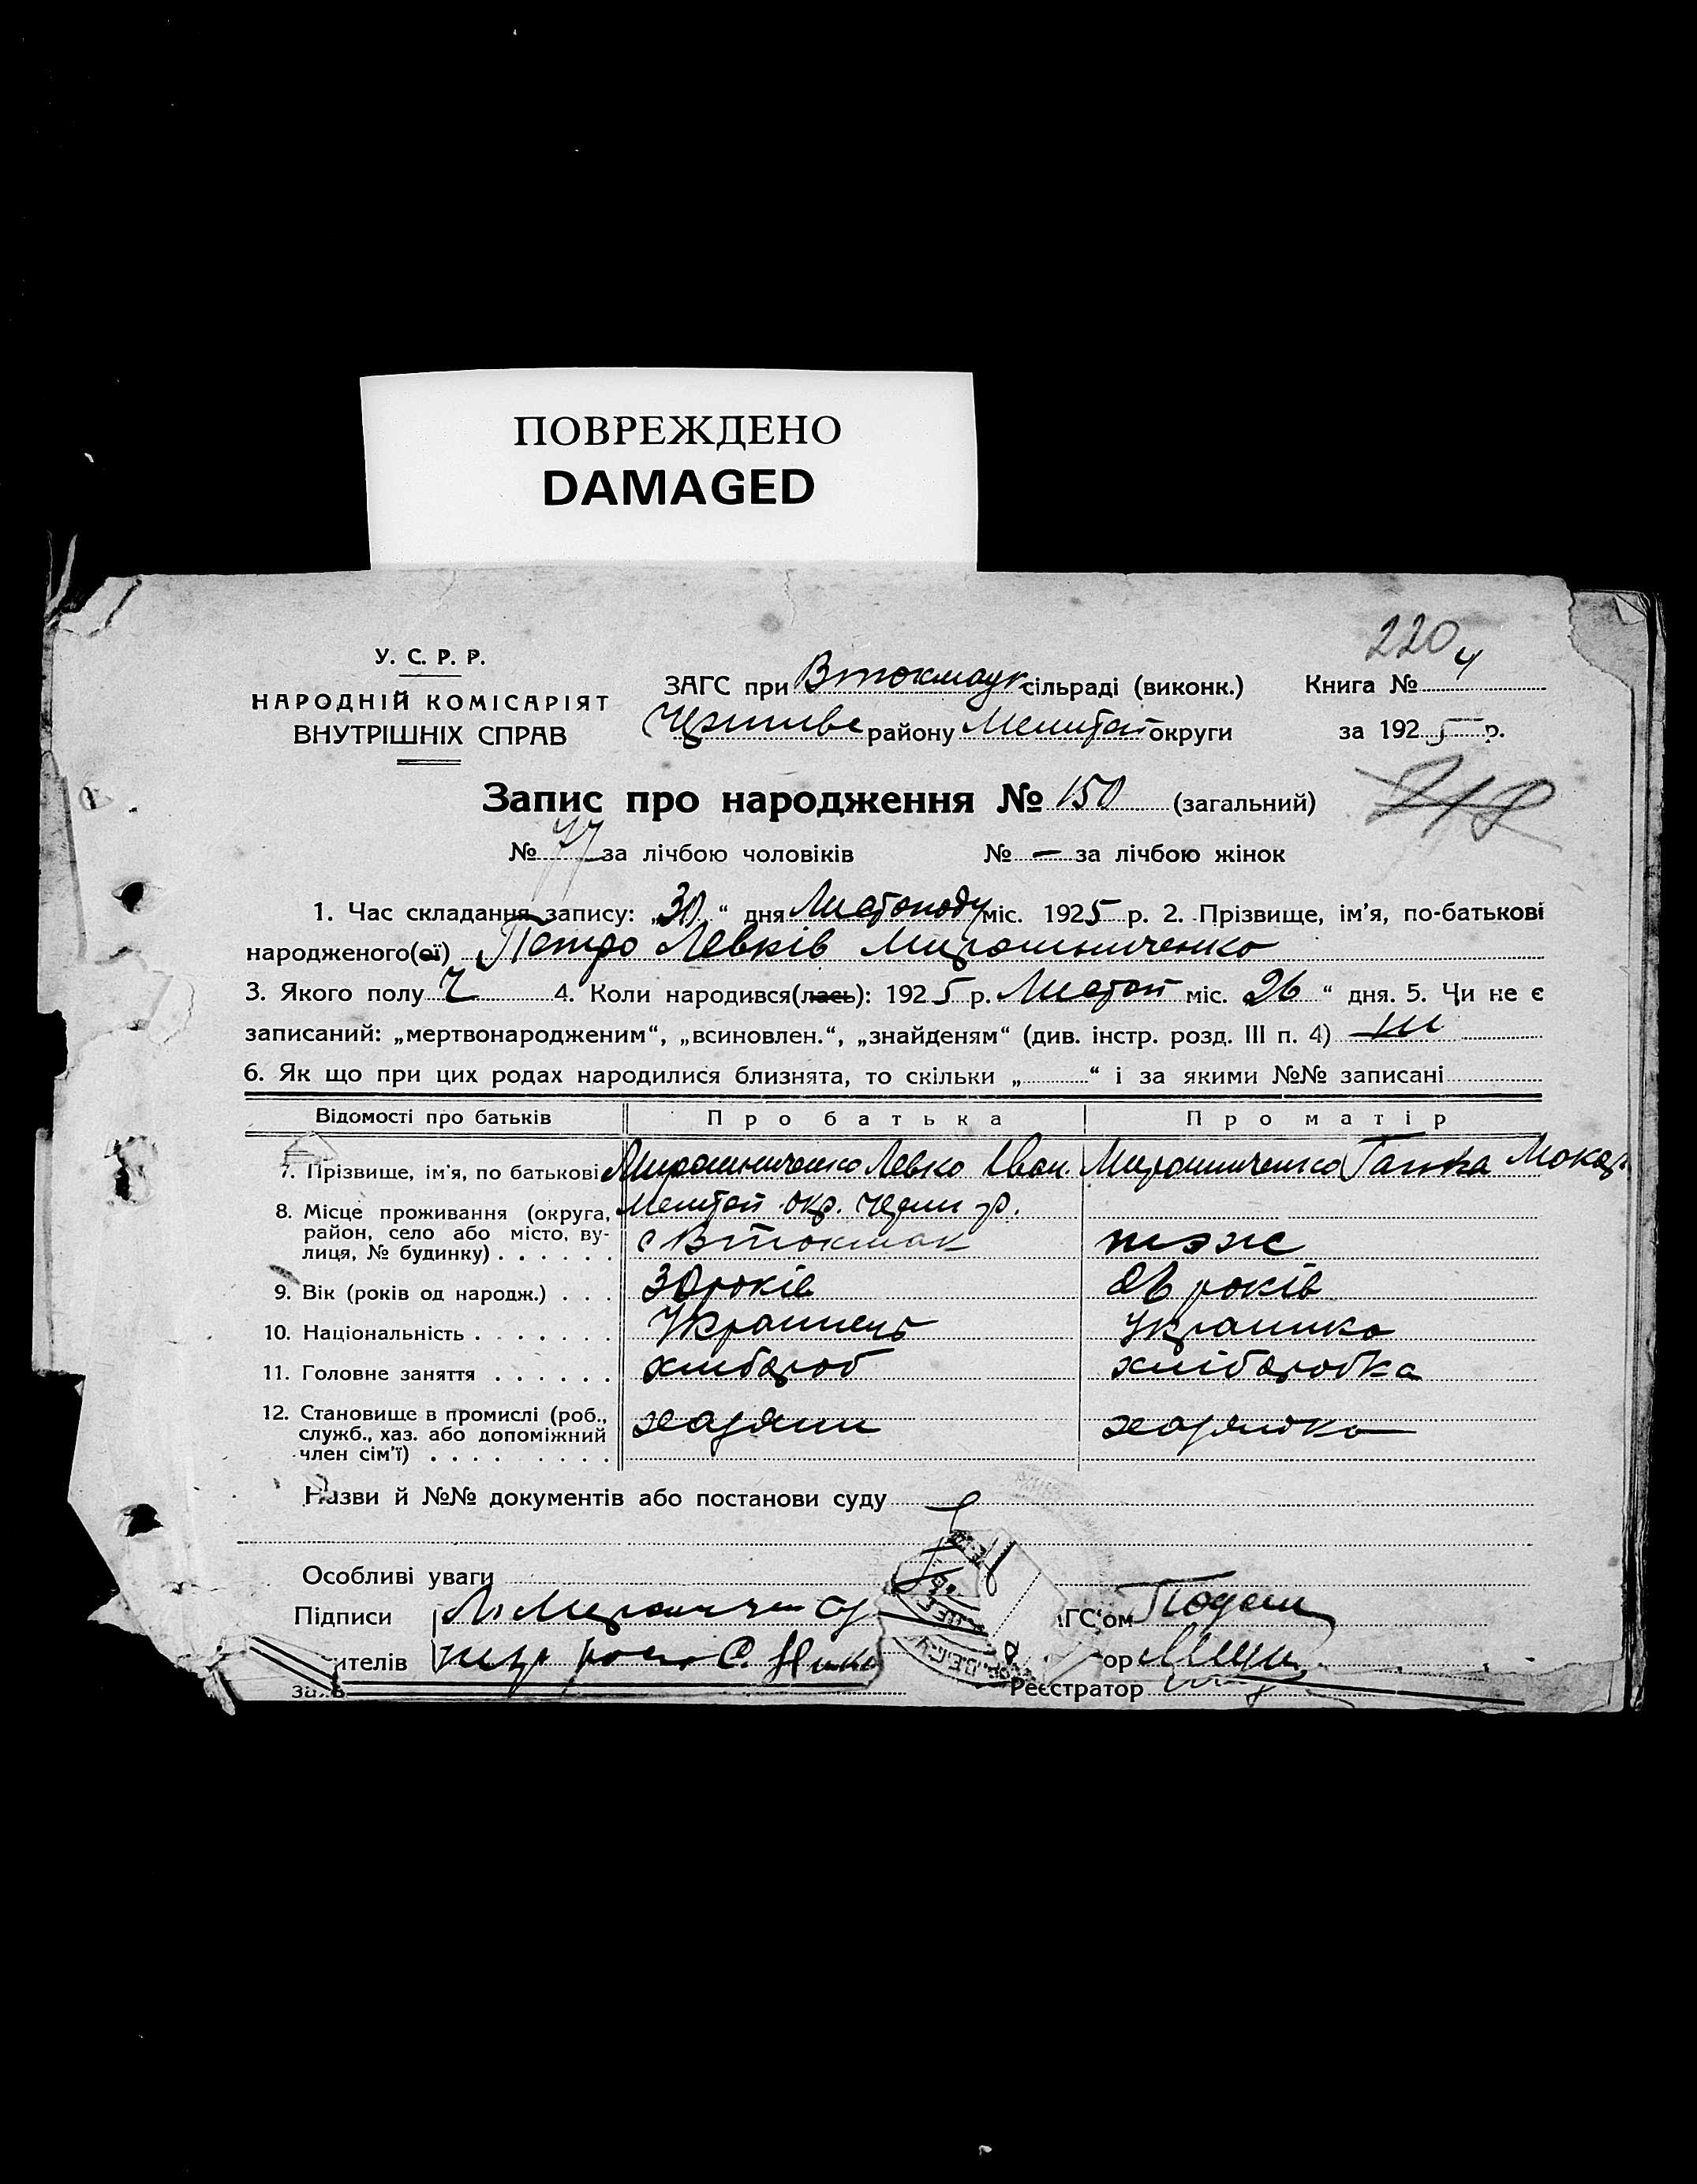 ПОВРЕЖДЕНО
DAMAGED
220
У. С. Р. Р.
НАРОДНІЙ КОМІСАРІЯТ
ВНУТРІШНІХ СПРАВ
ЗАГС при Втокмаук сільраді (виконк.) Книга № 4
району Мелітоп округи за 1925 р.
218
Запис про народження № 150 (загальний)
№ 77 за лічбою чоловіків № — за лічбою жінок
1. Час складання запису: „30“ дня Листоподу міс. 1925 р. 2. Прізвище, ім'я, по-батькові
народженого(ої) Петро Левків Мирошниченко
3. Якого полу Ч 4. Коли народився(лась): 1925 р. Листоп міс. 26 “ дня. 5. Чи не є
записаний: „мертвонародженим“, „всиновлен.“, „знайденям“ (див. інстр. розд. III п. 4)
6. Як що при цих родах народилися близнята, то скільки „ “ і за якими №№ записані
Відомості про батьків Про батька Про матір
7. Прізвище, ім'я, по батькові Мирошниченко Левко Іван. Мирошниченко Ганка Макар
8. Місце проживання (округа, район, село або місто, вулиця, № будинку) Мелітоп окр. р.
с Втокмак тэж
9. Вік (років од народж.) 30 років 26 років
10. Національність Украинець Украинка
11. Головне заняття хлибароб хлібаробка
12. Становище в промислі (роб., служб., хаз. або допоміжний член сім'ї) хазяин хазяйка
Назви й №№ документів або постанови суду
Особливі уваги
Підписи ГС'ом
ителів ор
Реєстратор